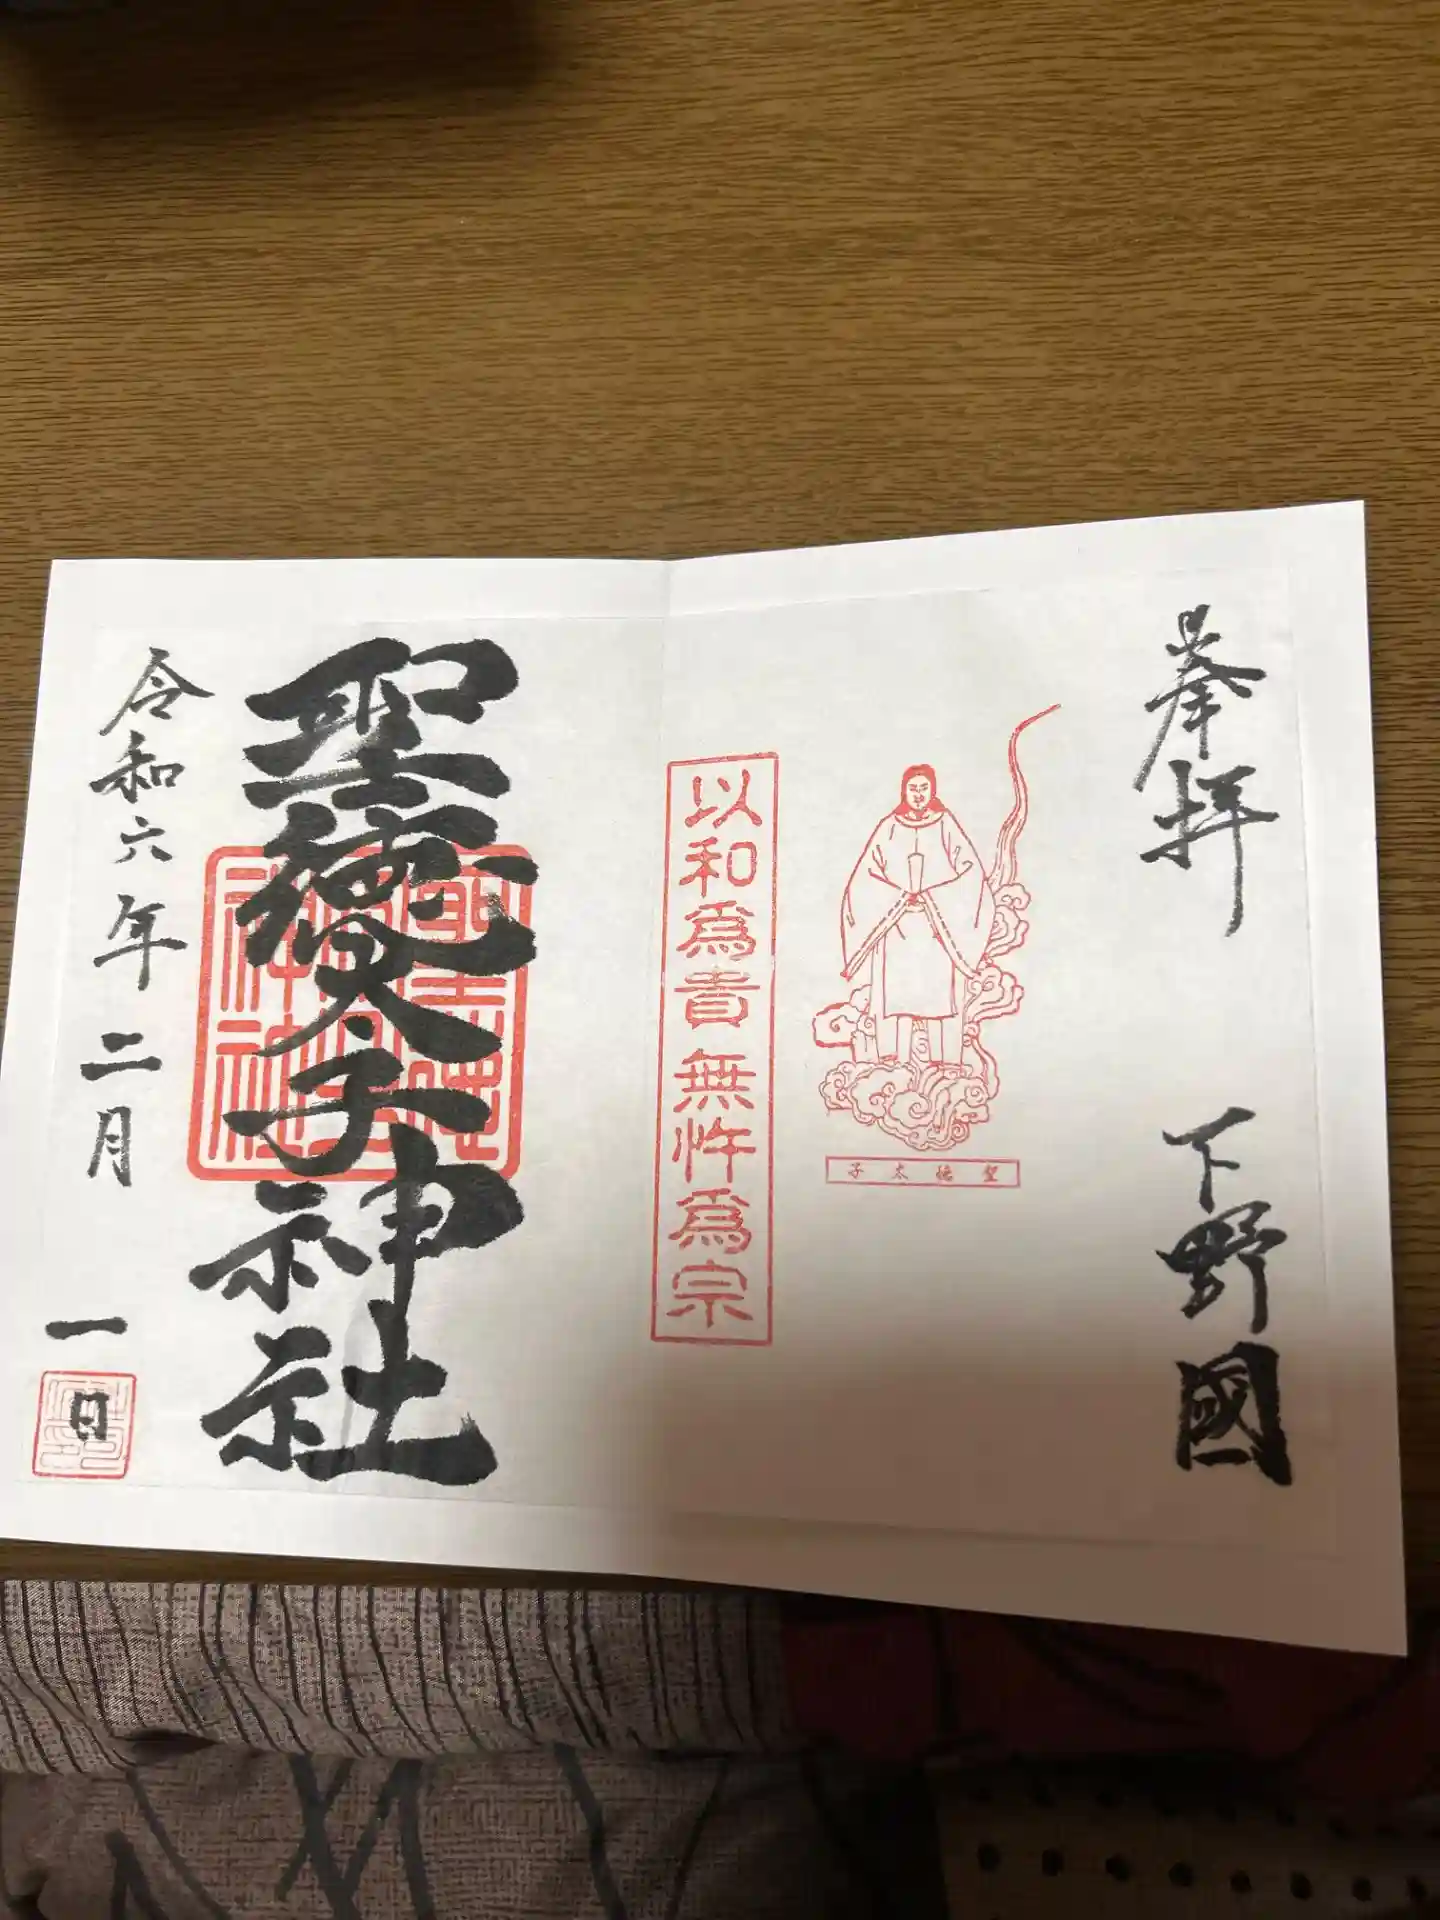 奉拝
下野國
聖徳太子
以和為貴無忤為宗
聖徳太子神社
令和六年二月一日